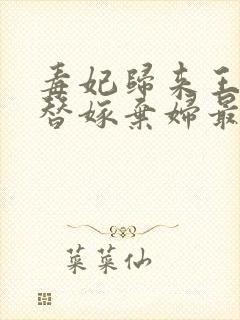 毒妃歸來王
替嫁棄婦最
菜菜仙